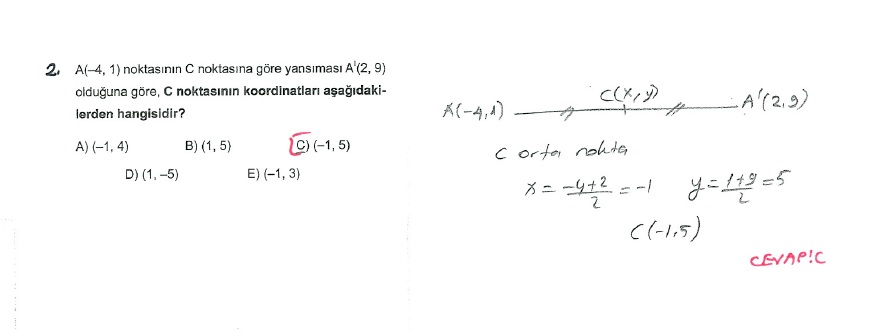 2. A(–4, 1) noktasının C noktasına göre yansıması A'(2, 9)
olduğuna göre, C noktasının koordinatları aşağıdaki-
lerden hangisidir?
A) (–1, 4) B) (1, 5) C) (–1, 5)
D) (1, –5) E) (–1, 3)
C(x, y)
A(-4,1) A'(2,9)
C orta nokta
x = -4+2/2 = -1 y = 1+9/2 = 5
C(-1,5)
CEVAP:C